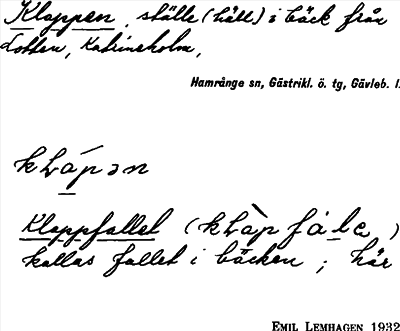 Klappen, ställe (häll) i bäck från
Lotten, Katrineholm,
Hamrånge sn, Gästrikl. ö. tg, Gävleb. l.
kLápən
Klappfallet (kLàpfálc)
kallas fallet i bäcken ; här
EMIL LEMHAGEN 1932